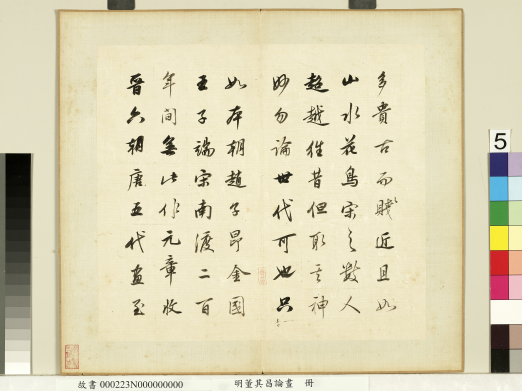 多貴古而賤近且如
山水花鳥宋之數人
超越往昔但取其神
妙勿論世代可也只
如本朝趙子昂金國
王子端宋南渡二百
年間無此作元章收
晉六朝唐五代畫至
5
故書 000223N000000000 明董其昌論畫 冊